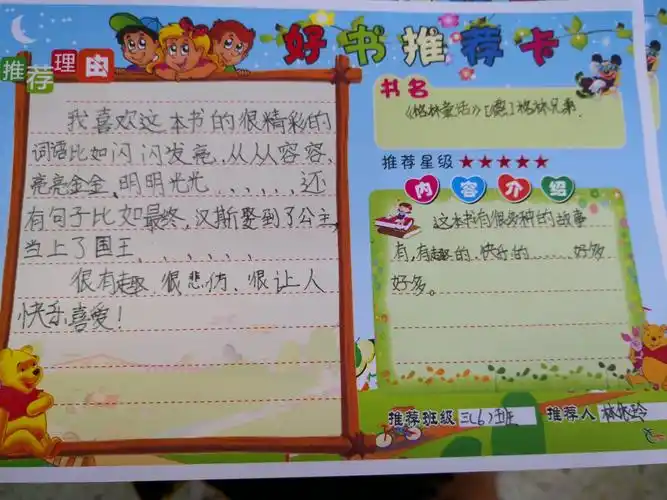 好书推荐卡
推荐理由
我喜欢这本书的很精彩的
词语比如闪闪发亮、从从容容、
亮亮金金、明明光光、、、、、、还
有句子比如最终,汉斯娶到了公主,
当上了国王、、、、、、
很有趣、很悲伤、很让人
快乐喜爱!
书名
《格林童话》[德]格林兄弟.
推荐星级★★★★★
内容介绍
这本书有很多种的故事
有,有趣的、快乐的……好多
好多。
推荐班级 三(6)班 推荐人 林依玲